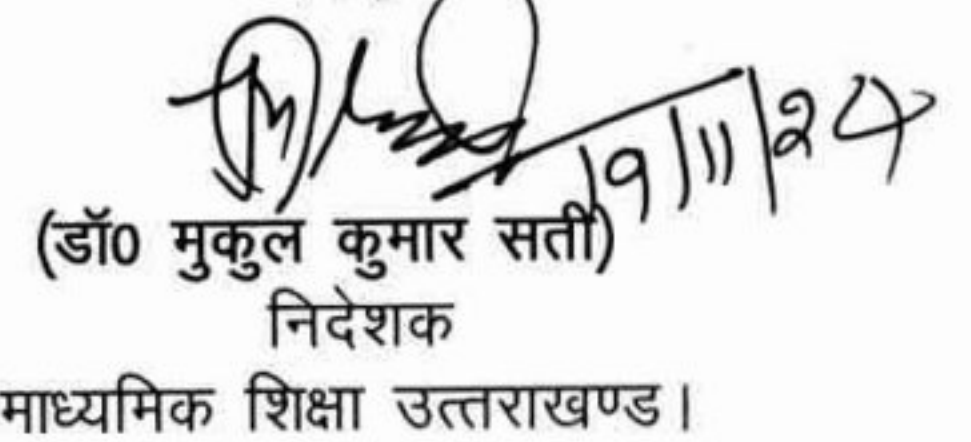 19/11/24
(डॉ0 मुकुल कुमार सती)
निदेशक
माध्यमिक शिक्षा उत्तराखण्ड।